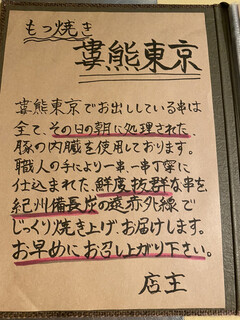 もつ焼き
婁熊東京
婁熊東京でお出ししている串は
全て、その日の朝に処理された
豚の内臓を使用しております。
職人の手により一串、一串丁寧に
仕込まれた、鮮度抜群な串を
紀州備長炭の遠赤外線で
じっくり焼き上げ、お届けします。
お早めにお召し上がり下さい。
店主